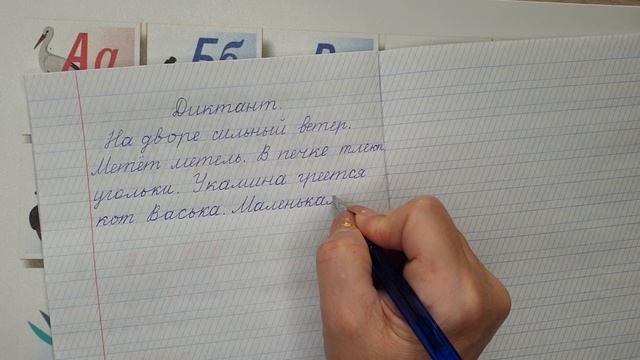 Аа
Бб
В
Диктант.
На дворе сильный ветер.
Метёт метель. В печке тлеют
угольки. Укамина греется
кот Васька. Маленькая